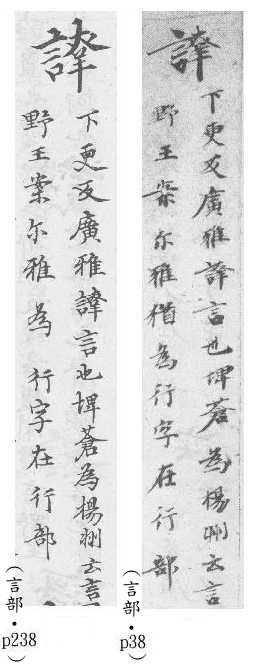 下更反廣雅言也埤蒼為楊州云言
野王案尔雅猶為行字在行部
(言部・p38)
下更反廣雅言也埤蒼為楊州云言
野王案尔雅為行字在行部
(言部・p238)